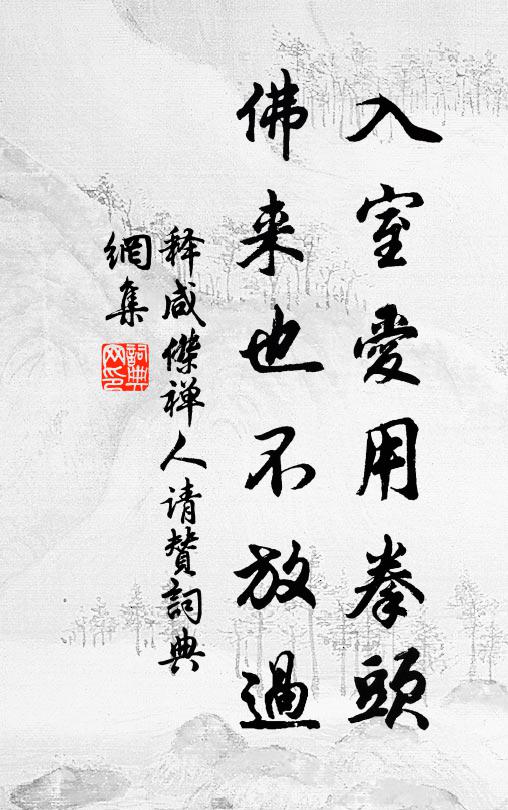 入室愛用拳頭
佛来也不放過
释咸傑禅人请赞詞典
網集
詞典网印